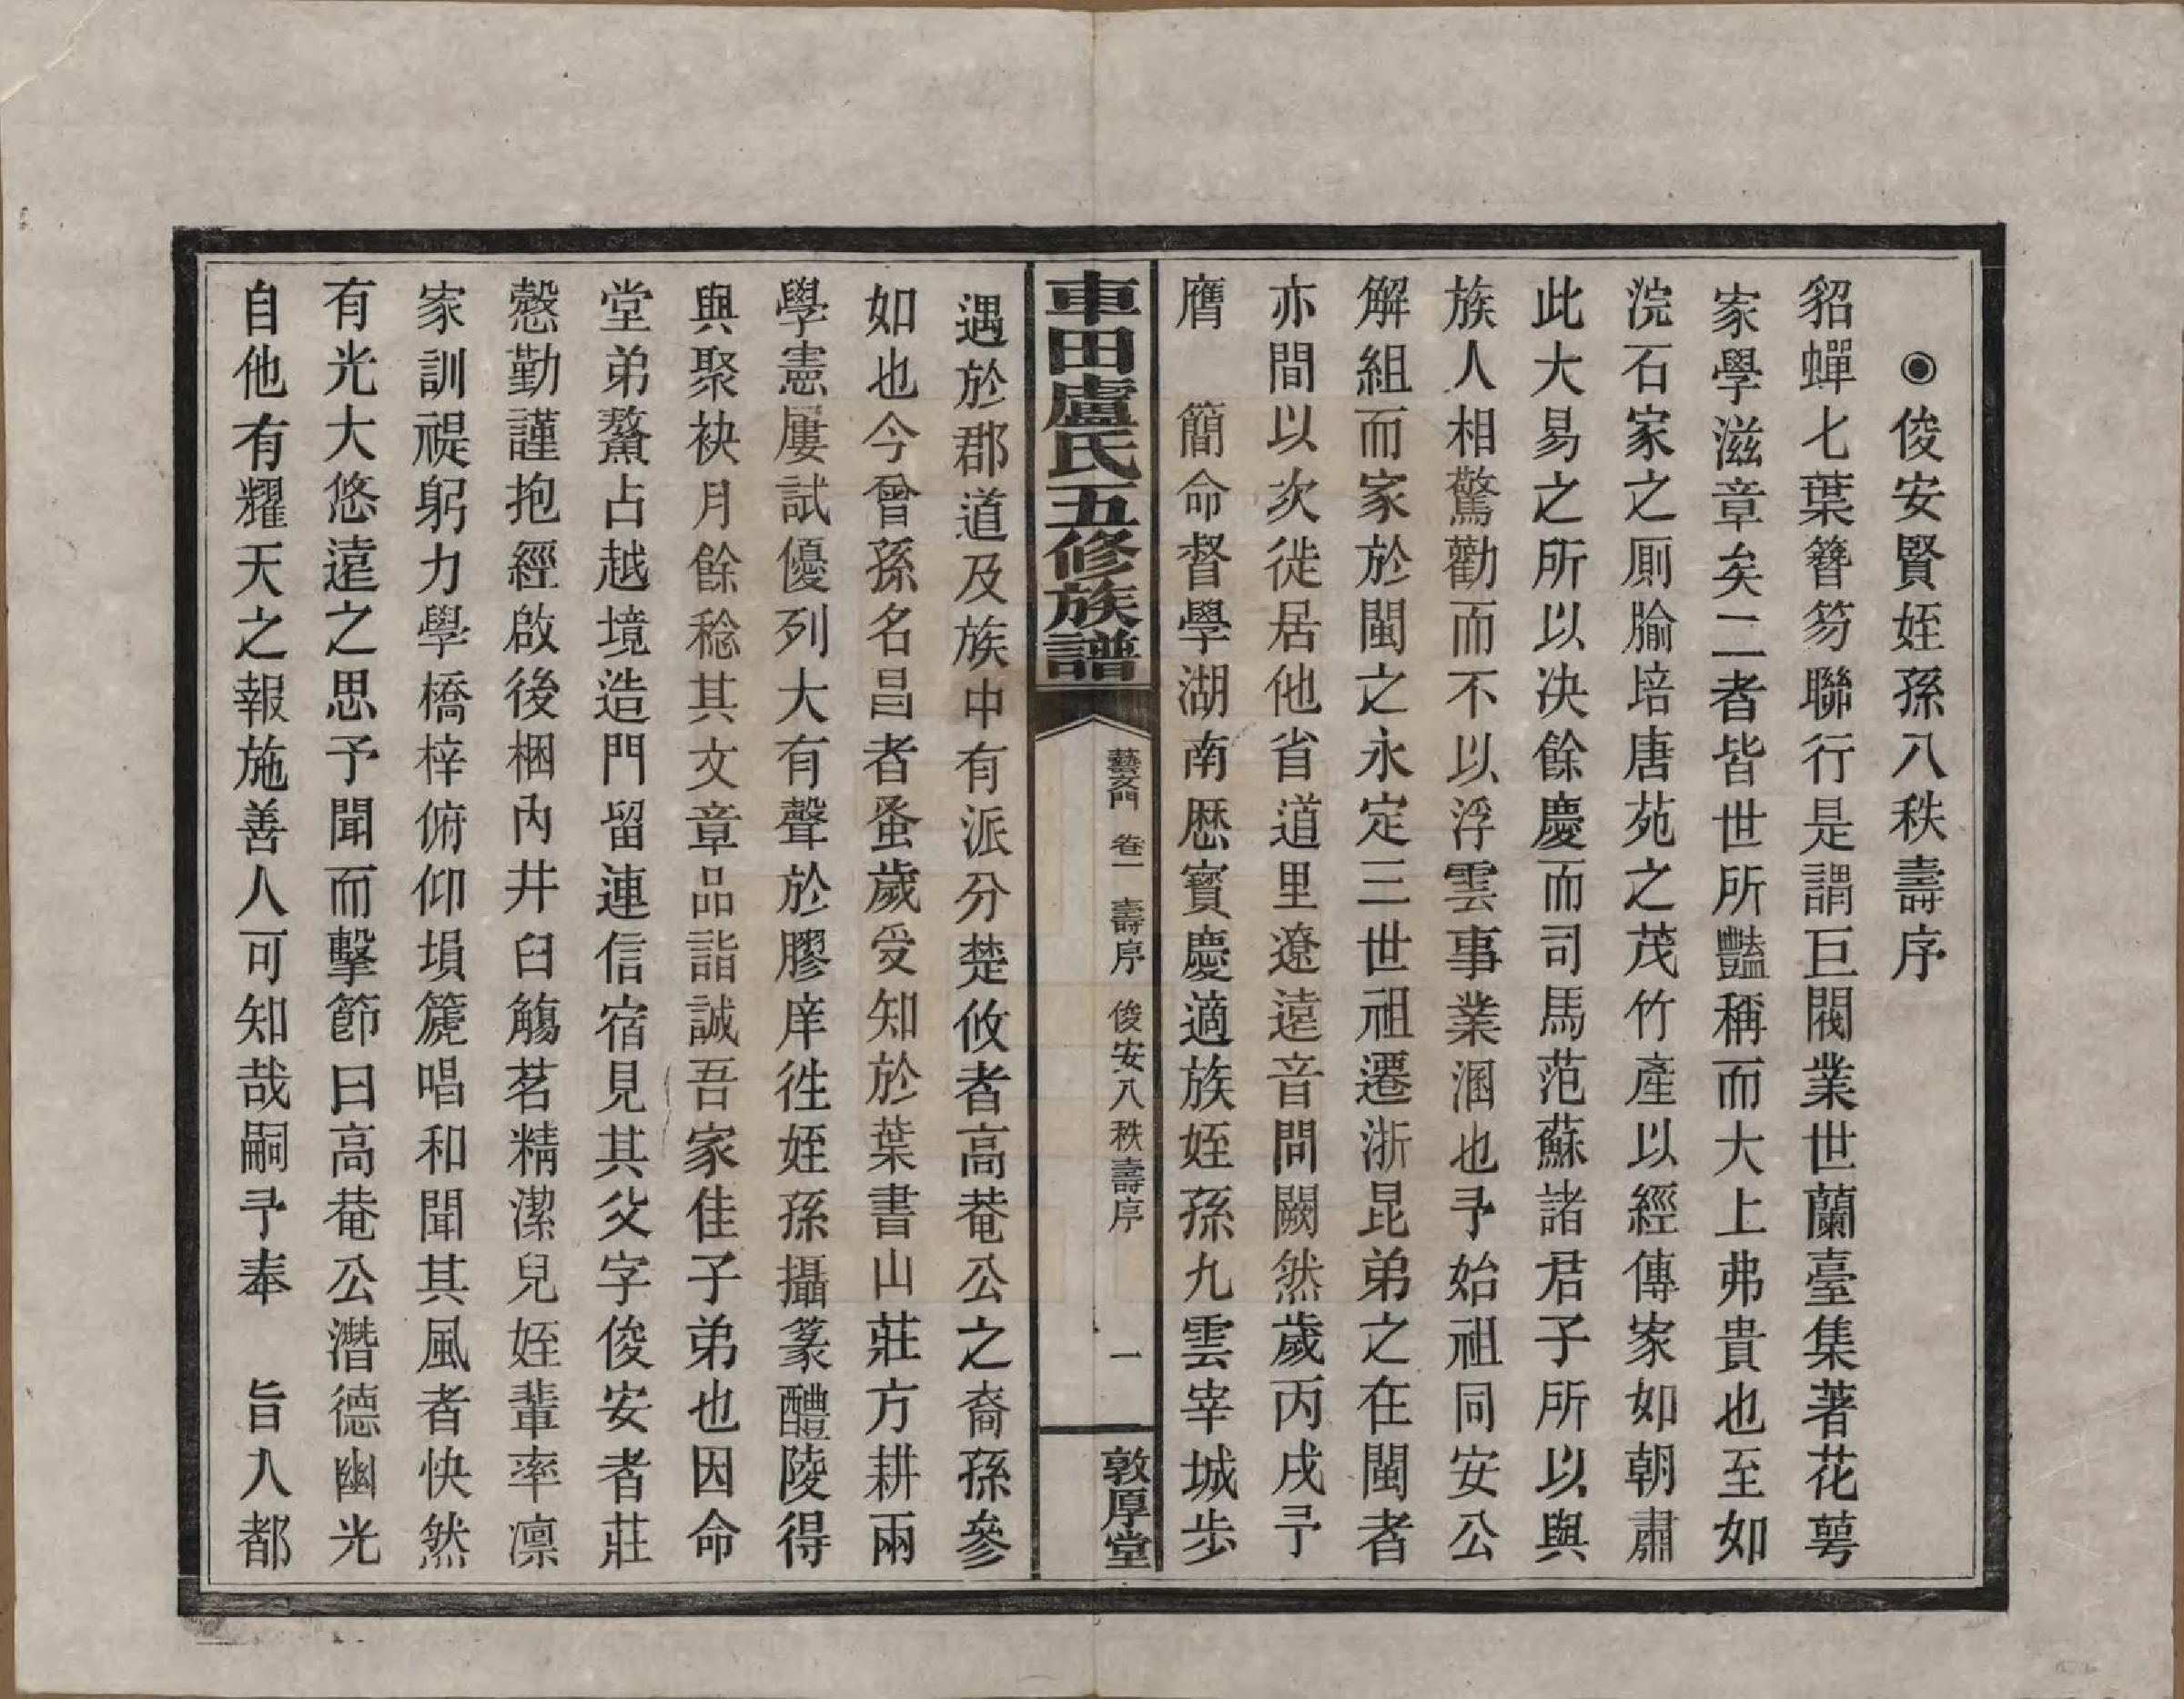 ◉俊安賢姪孫八秩壽序
貂蟬七葉簪笏聯行是謂巨閥業世蘭臺集著花萼
家學滋章矣二者皆世所豔稱而大上弗貴也至如
浣石家之厠牏培唐苑之茂竹產以經傳家如朝肅
此大易之所以決餘慶而司馬范蘇諸君子所以與
族人相驚勸而不以浮雲事業溷也予始祖同安公
解組而家於閩之永定三世祖遷浙昆弟之在閩者
亦間以次徙居他省道里遼遠音問闕然歲丙戌予
膺　簡命督學湖南歷寳慶適族姪孫九雲宰城步
車田盧氏五修族譜
藝文門　卷一　壽序　俊安八秩壽序
一
敦厚堂
遇於郡道及族中有派分楚攸者高菴公之裔孫參
如也今曾孫名昌者蚤歲受知於葉書山莊方耕兩
學憲屢試優列大有聲於膠庠徃姪孫攝篆醴陵得
與聚袂月餘稔其文章品詣誠吾家佳子弟也因命
堂弟騖占越境造門留連信宿見其父字俊安者莊
慤勤謹抱經啟後梱內井臼觴茗精潔兒姪輩率凛
家訓禔躬力學橋梓俯仰塤箎唱和聞其風者快然
有光大悠遠之思予聞而擊節曰高菴公潛德幽光
自他有耀天之報施善人可知哉嗣予奉　旨入都